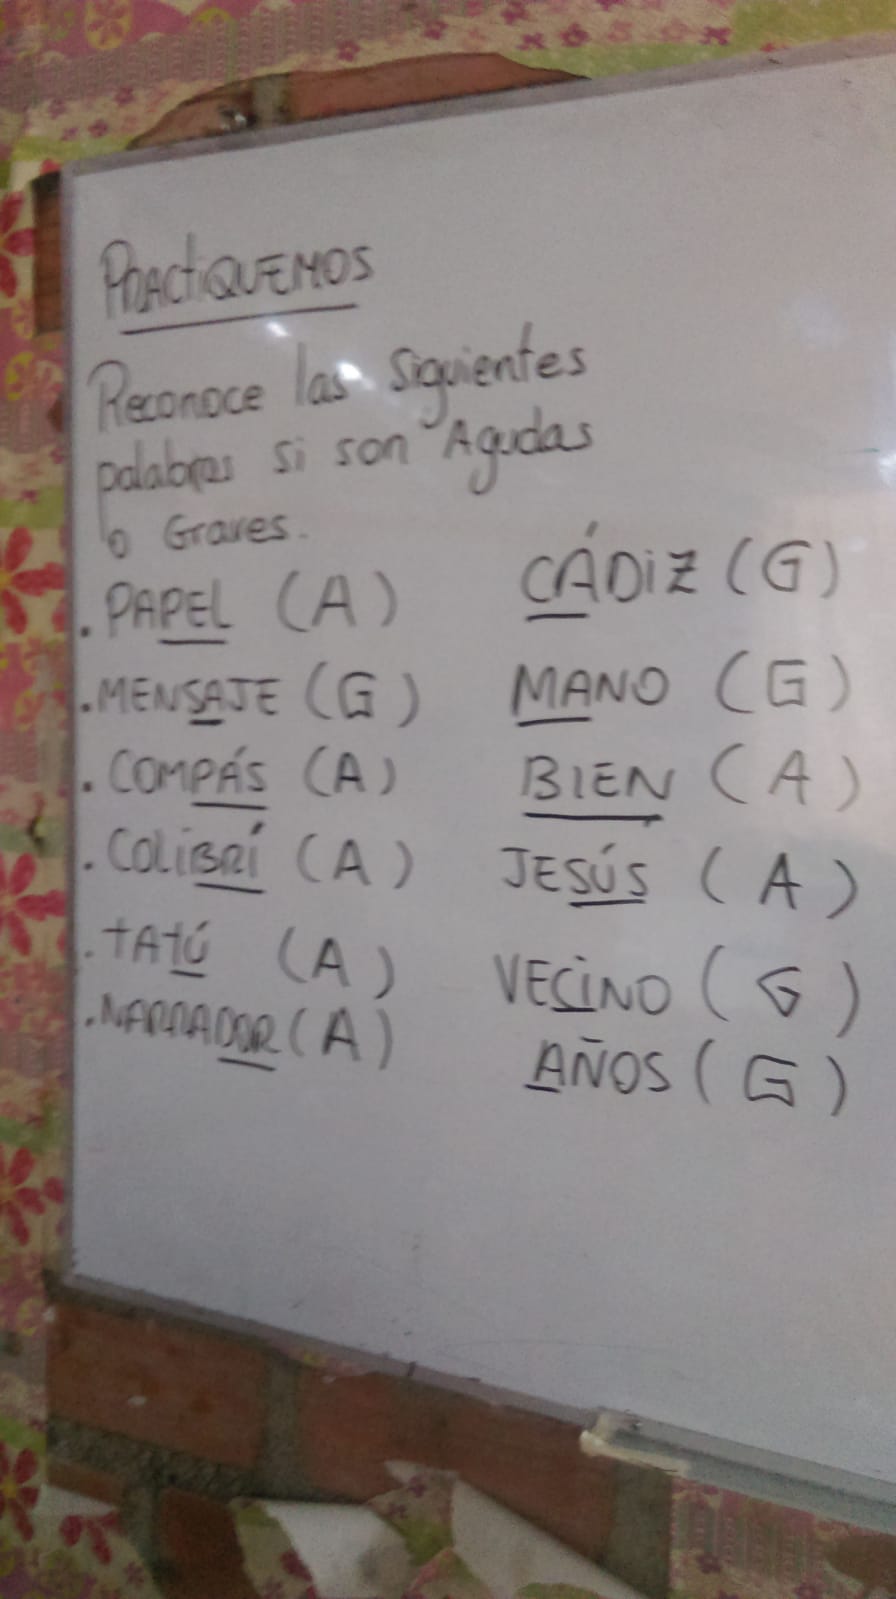 PRACTiQUEMOS
Reconoce las Siguientes
palabras si son Agudas
o Graves.
. PAPEL (A)
. MENSAJE (G)
. COMPÁS (A)
. COLiBRÍ (A)
. TATÚ (A)
. NARRADOR (A)
CÁDiZ (G)
MANO (G)
BIEN (A)
JESÚS (A)
VECiNO (G)
AÑOS (G)